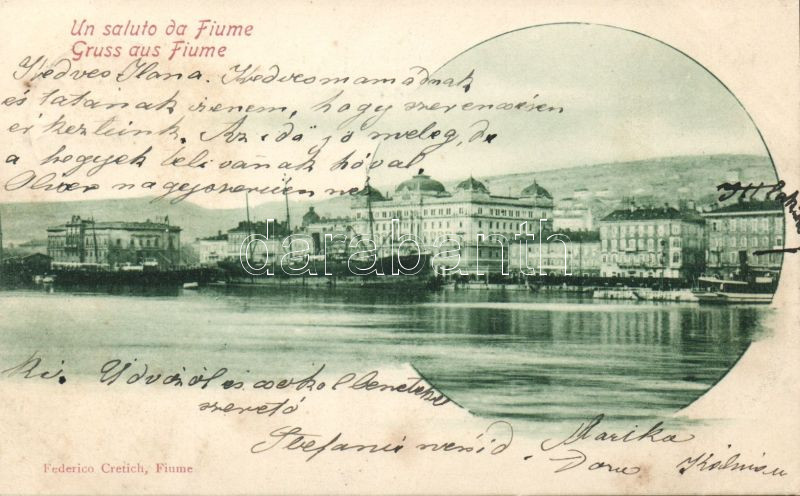 Un saluto da Fiume
Gruss aus Fiume
Kedves Ilona. Kedves mamádnak
és tatának izenem, hogy szerencsésen
érkeztünk. Az idő jó meleg, de
a hegyek teli vannak hóval
Oliver nagyszerűen
darabanth
ki. Üdvözöl és csókol benneteket
szerető
Stefanie nénéd. Marika
Kálmán
Federico Cretich, Fiume